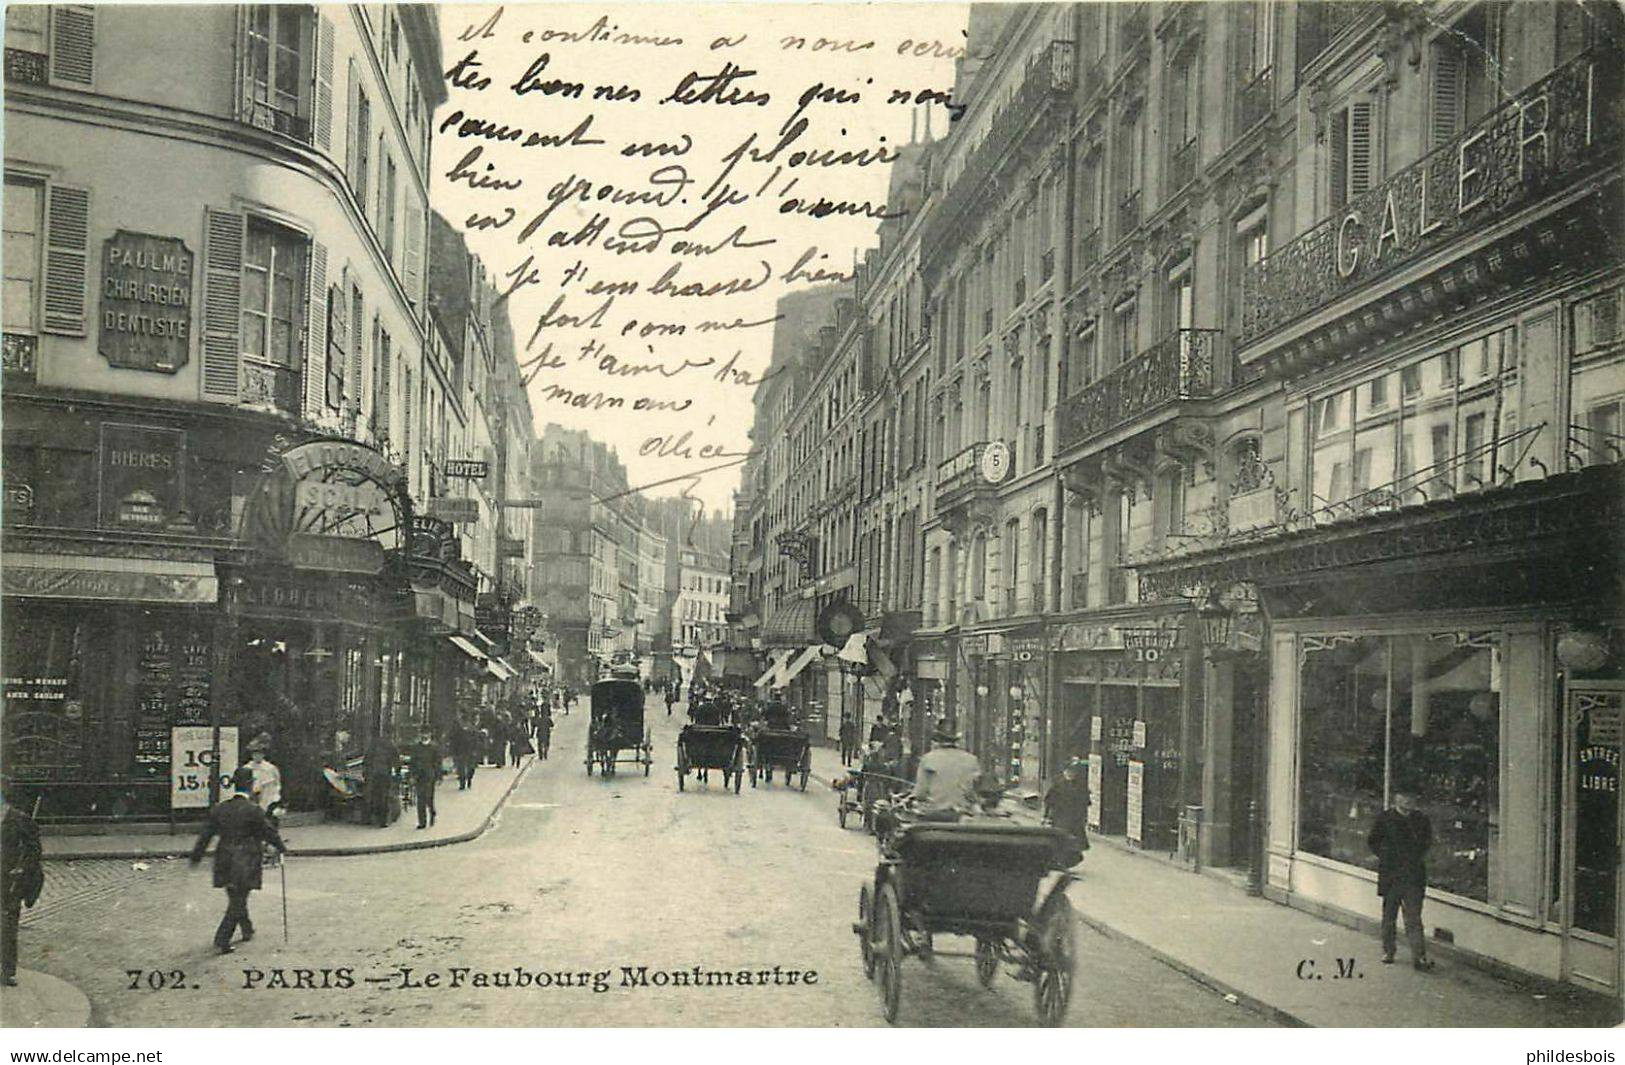 et continues a nous ecrir
tes bonnes lettres qui nous
causent un plaisir
bien grand. je t'assure
en attendant
je t'embrasse bien
fort comme
je t'aime ta
maman
Alice
PAULME
CHIRURGIEN
DENTISTE
VINS
ELDORADO
SCALA
HOTEL
BIERES
10
15
5
GALERI
10c
10c
ENTREE
LIBRE
702. PARIS - Le Faubourg Montmartre
C. M.
www.delcampe.net
phildesbois